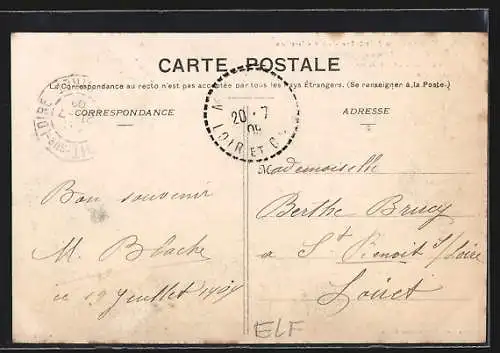 CARTE POSTALE
La Correspondance au recto n'est pas acceptée par tous les pays Étrangers. (Se renseigner à la Poste.)
CORRESPONDANCE
ADRESSE
20 - 7
LOIR ET C
Mademoiselle
Bon souvenir
Berthe Brucy
M. Blache
a St Benoit s/Loire
ce 19 Juillet 1904
Loiret
ELF